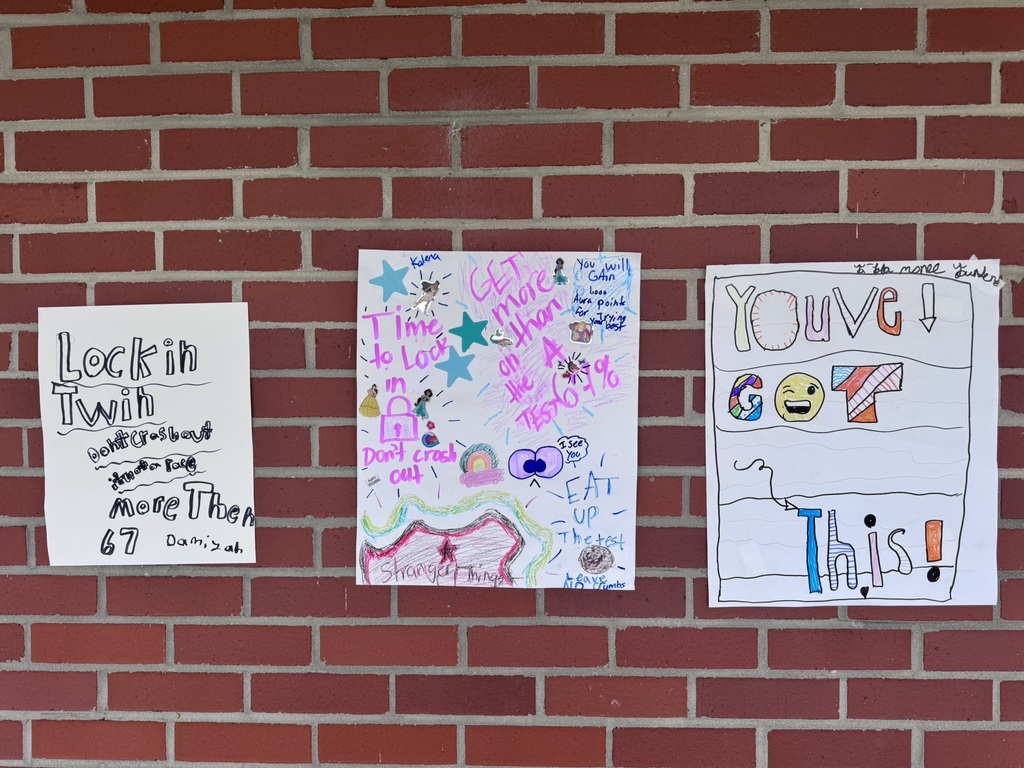 Lock in
Twin
Dont crash out
it not a race
more Then
67 Damiyah
Kalena
Time
to Lock
in
Don't crash
out
GET
more
than
A
67%
on
the
TEST
You will
GAIN
1,000
Aura points
for Trying
Your best
I see
You
EAT
UP
The test
Leave
NO crumbs
Stranger Things
YOUVE
GOT
This!